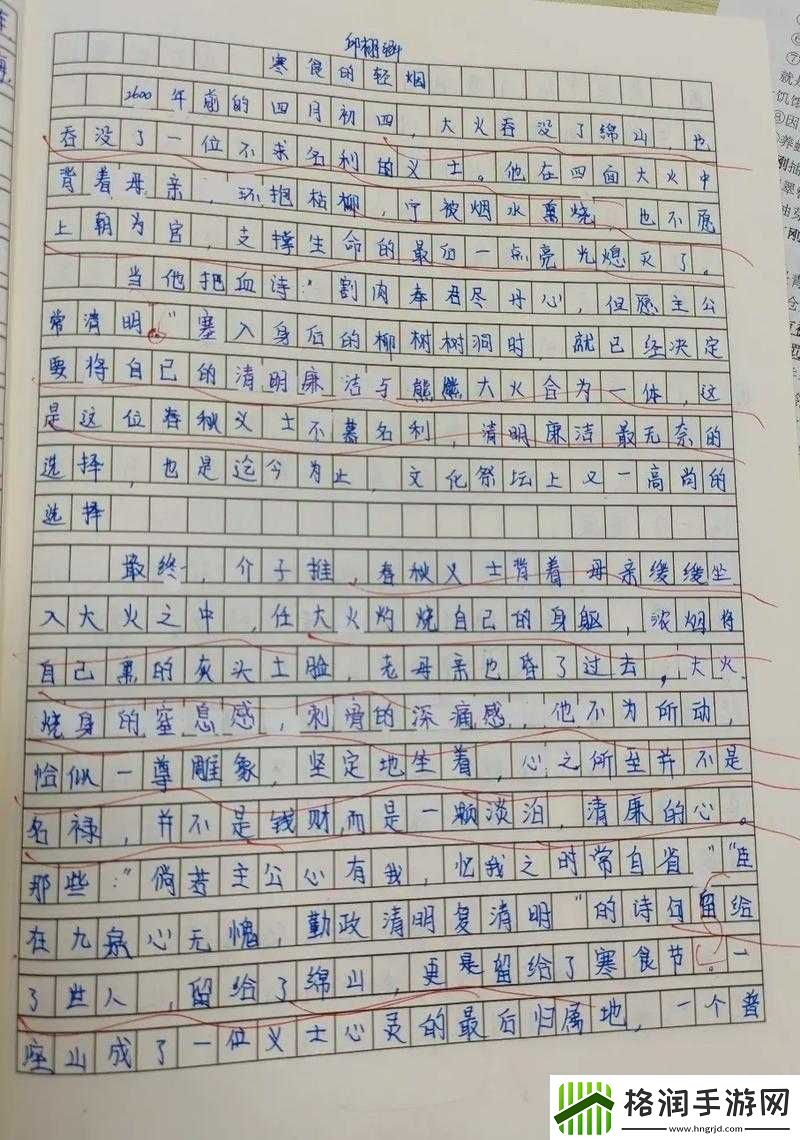 邱栩
寒食的轻烟
2600年前的四月初四，大火吞没了绵山，也
吞没了一位不求名利的义士。他在四面大火中
背着母亲，环抱枯柳，宁被烟火熏烧，也不愿
上朝为官，支撑生命的最后一点亮光熄灭了。
当他把血诗："割肉奉君尽丹心，但愿主公
常清明。"塞入身后的柳树树洞时，就已经决定
要将自己的清明廉洁与熊熊大火合为一体，这
是这位春秋义士不慕名利，清明廉洁最无奈的
选择，也是迄今为止，文化祭坛上又一高尚的
选择
最终，介子推，春秋义士背着母亲缓缓坐
入大火之中，任大火灼烧自己的身躯，浓烟将
自己熏的灰头土脸，老母亲也昏了过去，大火
烧身的窒息感，刺骨的深痛感，他不为所动，
恰似一尊雕象，坚定地坐着，心之所至并不是
名禄，并不是钱财，而是一颗淡泊，清廉的心。
那些："倘若主公心有我，忆我之时常自省""臣
在九泉心无愧，勤政清明复清明"的诗句留给
了世人，留给了绵山，更是留给了寒食节。一
座山成了一位义士心灵的最后归属地，一个普
格润手游网
www.hngrjd.com
就
饥饿
⑧因
养
刚抽
翠
刚